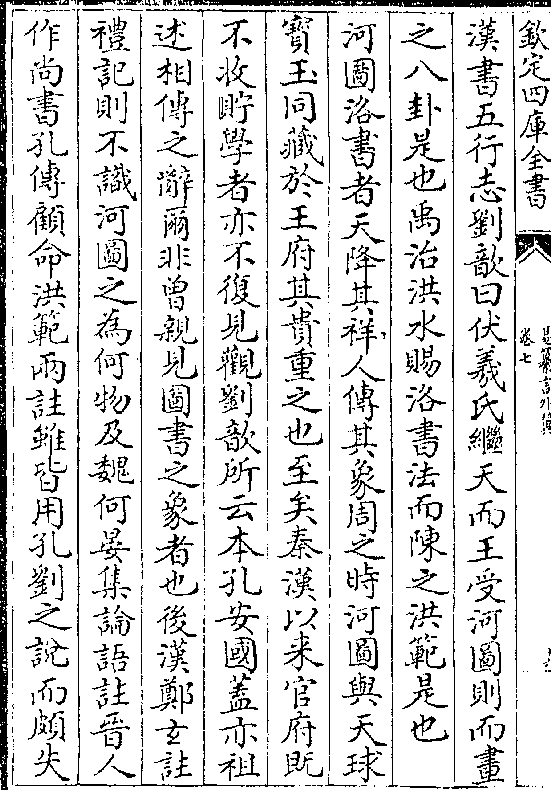 欽定四庫全書
卷七
漢書五行志劉歆曰伏羲氏繼天而王受河圖則而畫
之八卦是也禹治洪水賜洛書法而陳之洪範是也
河圖洛書者天降其祥人傳其象周之時河圖與天球
寳玉同藏於王府其貴重之也至矣秦漢以来官府既
不收貯學者亦不復見觀劉歆所云本孔安國蓋亦祖
述相傳之辭爾非曾親見圖書之象者也後漢鄭玄註
禮記則不識河圖之為何物及魏何晏集論語註晉人
作尚書孔傳顧命洪範兩註雖皆用孔劉之說而頗失